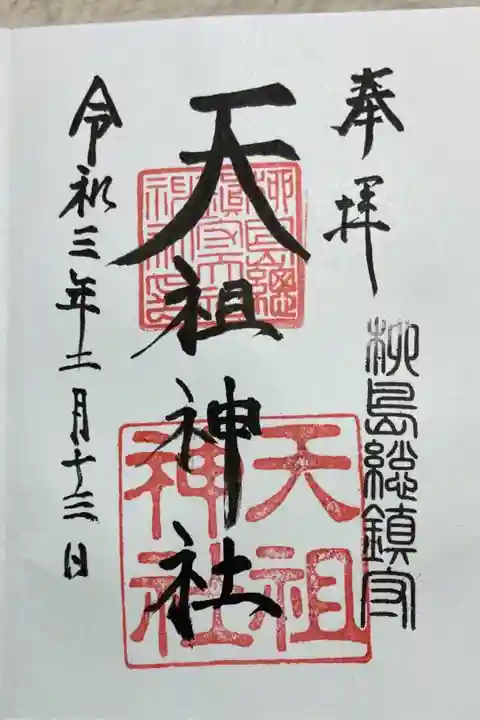 奉拝
柳島総鎮守
天祖神社
柳島總
鎮守天
天祖
神社
令和三年二月十三日